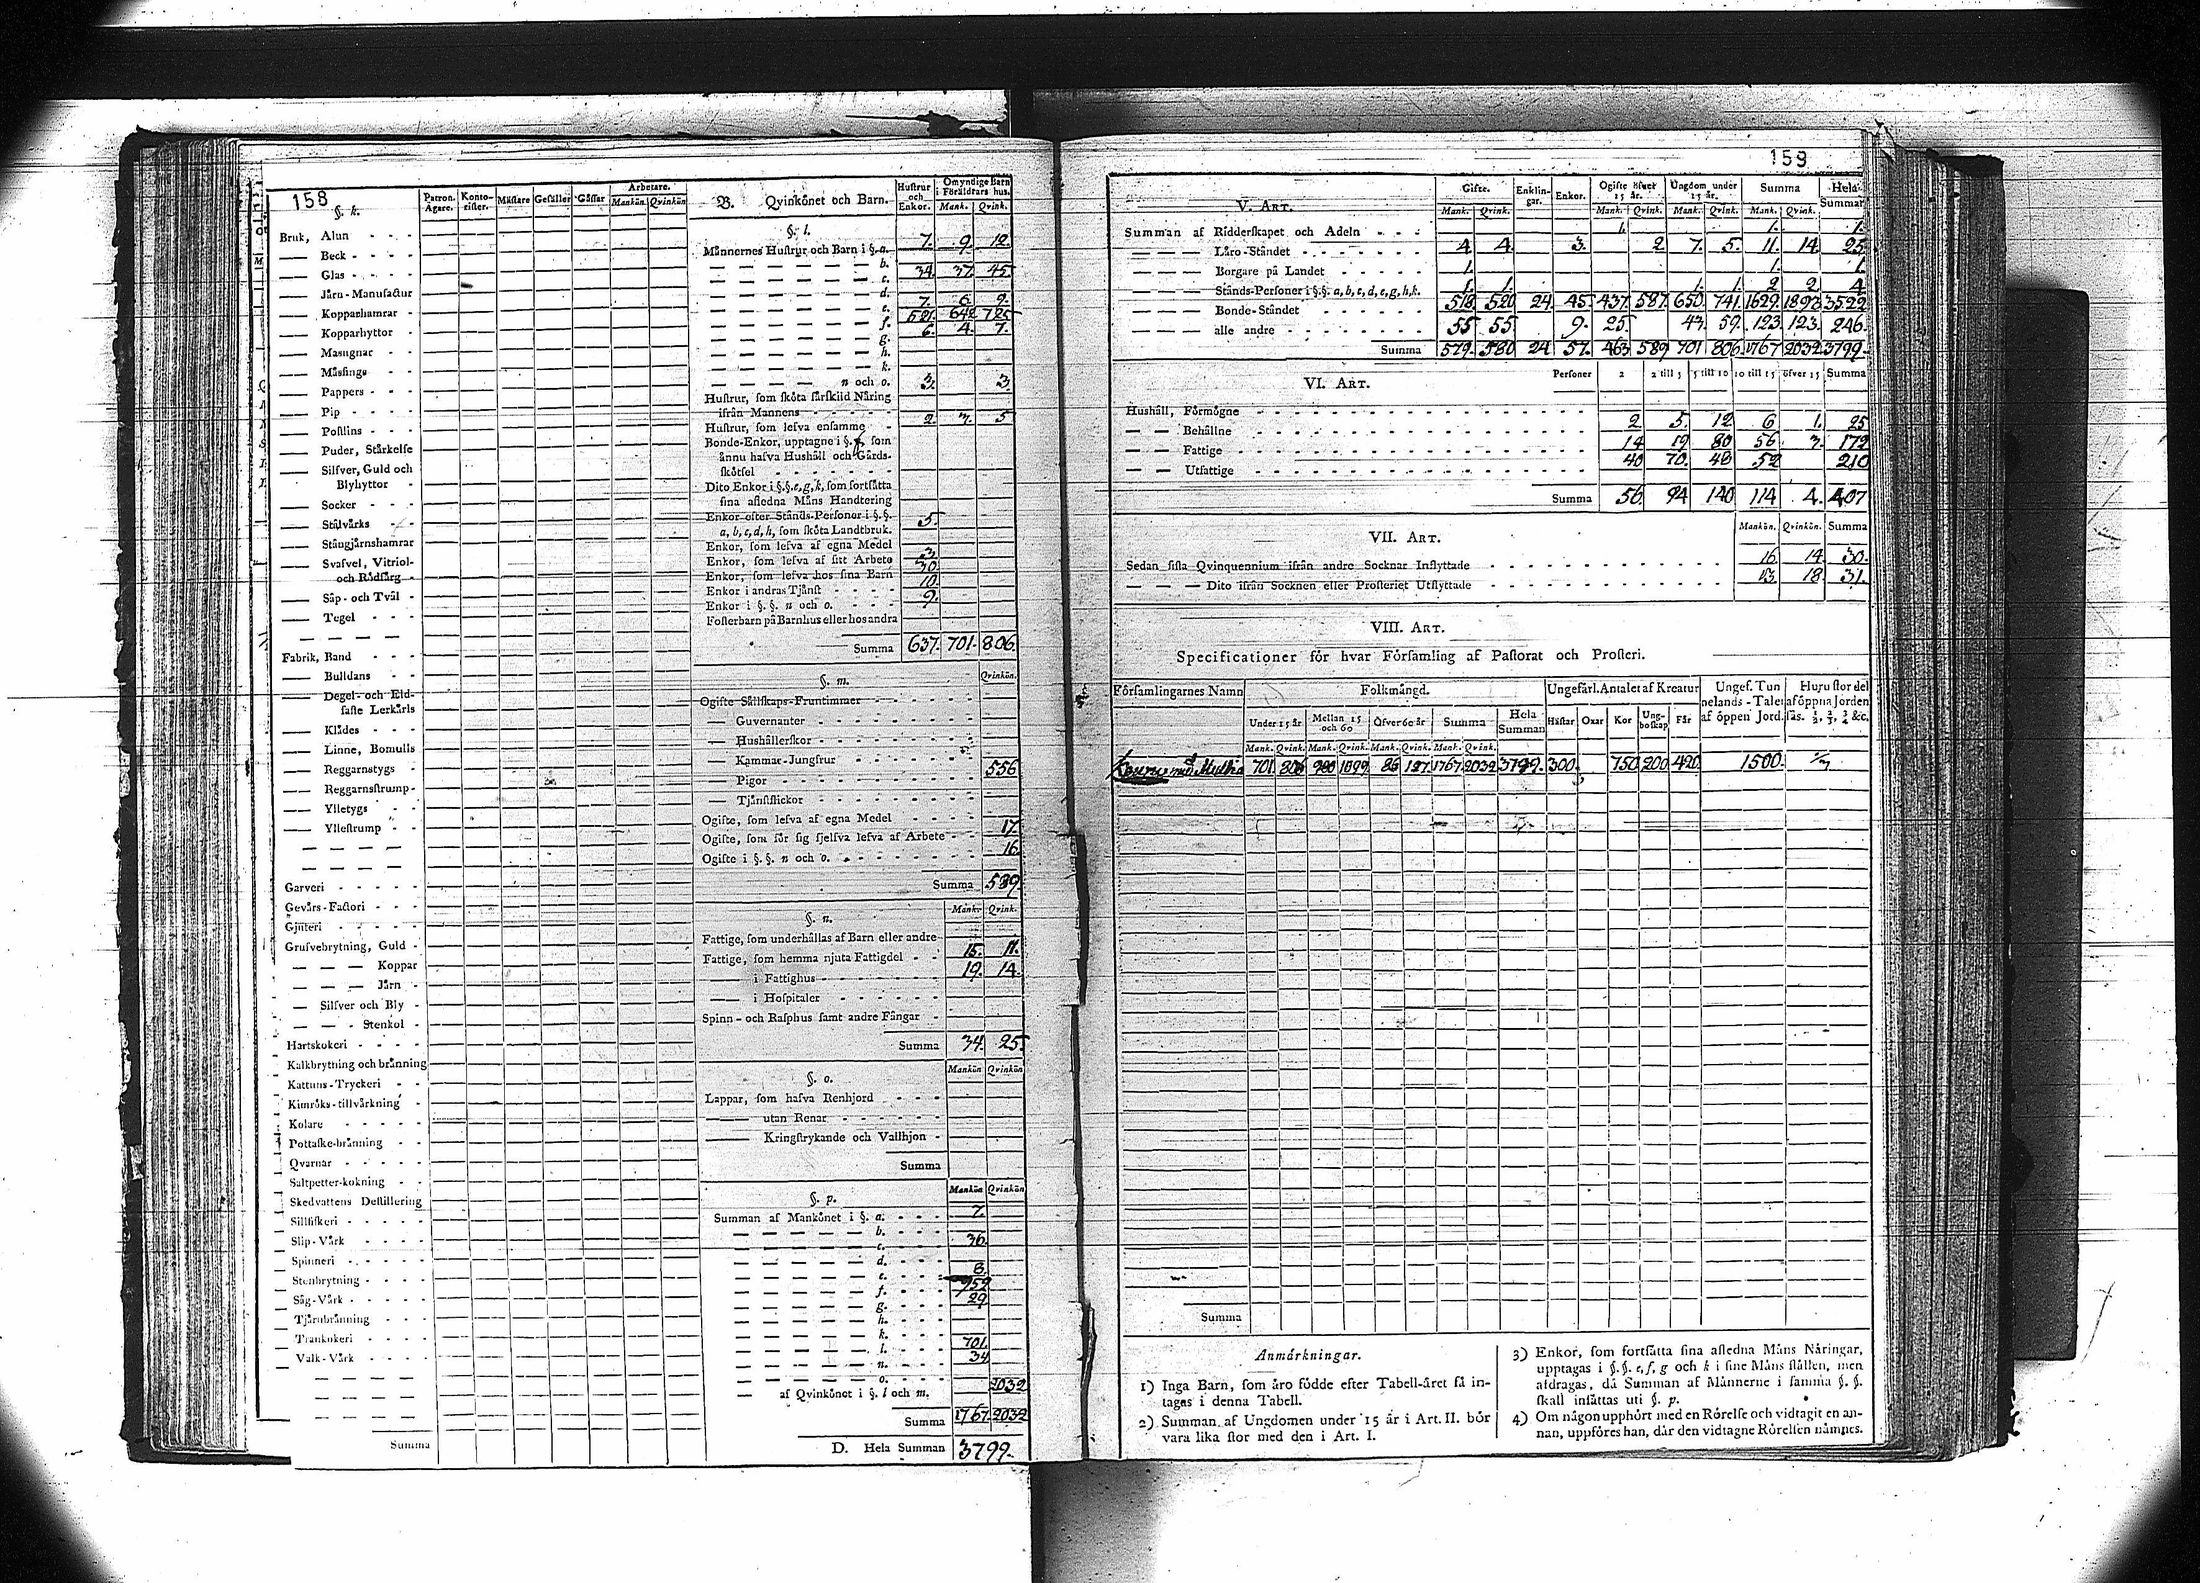 158
§. k.
Patron. Ägare. Konto-rister. Mästare Gesäller Gåssar Arbetare. Mankön. Qvinkön
Bruk, Alun - - -
— Beck - - - -
— Glas - - - -
— Järn-Manufactur
— Kopparhamrar -
— Kopparhyttor -
— Masugnar - -
— Mässings - -
— Pappers - - -
— Pip - - - -
— Postlins - - -
— Puder, Stärkelse
— Silfver, Guld och
Blyhyttor -
— Socker - - -
— Stålvärks - -
— Stångjärnshamrar
— Svafvel, Vitriol-
och Rödfärg -
— Såp- och Tvål -
— Tegel - - -
— — — —
Fabrik, Band - - -
— Bulldans - -
— Degel- och Eld-
faste Lerkärls
— Klädes - - -
— Linne, Bomulls
— Reggarnstygs -
— Reggarnsstrump-
— Ylletygs - -
— Yllestrump - -
— — — —
— — — —
Garveri - - - - -
Gevärs-Factori - - -
Gjuteri - - - - -
Grufvebrytning, Guld -
— — — Koppar
— — — Järn -
— Silfver och Bly -
— — - Stenkol -
Hartskokeri - - - -
Kalkbrytning och bränning
Kattuns-Tryckeri - -
Kimröks-tillvärkning -
Kolare - - - - -
Pottaske-bränning - -
Qvarnar - - - - -
Saltpetter-kokning - -
Skedvattens Destillering
Sillfiskeri - - - - -
Slip-Värk - - - -
Spinneri - - - - -
Stenbrytning - - - -
Såg-Värk - - - - -
Tjärubränning - - -
Trankokeri - - - -
Valk-Värk - - - -
— — — —
— — — —
— — — —
Summa
B. Qvinkönet och Barn. Hustrur och Enkor. Omyndige Barn i Föräldrars hus. Mank. Qvink.
§. l.
Männernes Hustrur och Barn i §. a. 7. 9. 12.
— — — — — b. 34. 37. 45.
— — — — — c.
— — — — — d. 7. 6. 9.
— — — — — e. 521. 642. 725.
— — — — — f. 6. 4. 7.
— — — — — g.
— — — — — h.
— — — — — k.
— — — — n och o. 3. 3.
Hustrur, som sköta särskild Näring
ifrån Mannens - - - - - -
Hustrur, som lefva ensamme - 2. 3. 5
Bonde-Enkor, upptagne i §. f, som
ännu hafva Hushåll och Gårds-
skötsel - - - - - - -
Dito Enkor i §.§. e, g, k, som fortsätta
sina afledna Mäns Handtering
Enkor efter Stånds-Personer i §.§.
a, b, c, d, h, som sköta Landtbruk. 5.
Enkor, som lefva af egna Medel
Enkor, som lefva af sitt Arbete 3.
Enkor, som lefva hos sina Barn 30.
Enkor i andras Tjänst - - - - 10.
Enkor i §. §. n och o. - - - - 9.
Fosterbarn på Barnhus eller hos andra
Summa 637. 701. 806.
§. m. Qvinkön.
Ogifte Sällskaps-Fruntimmer - - - - - -
— Guvernanter - - - - - - -
— Hushållerskor - - - - - - -
— Kammar-Jungfrur - - - - -
— Pigor - - - - - - - - - 556
— Tjänstflickor - - - - - - -
Ogifte, som lefva af egna Medel - - - -
Ogifte, som för sig sjelfva lefva af Arbete - - 17.
Ogifte i §. §. n och o. - - - - - - - - 16.
Summa 589
§. n. Mank. Qvink.
Fattige, som underhållas af Barn eller andre
Fattige, som hemma njuta Fattigdel - - 15. 11.
— i Fattighus - - - - - - - 19. 14.
— i Hospitaler - - - - - -
Spinn- och Rasphus samt andre Fångar -
Summa 34. 25.
§. o. Mankön Qvinkön
Lappar, som hafva Renhjord - - -
— utan Renar - - - - -
— Kringstrykande och Vallhjon -
Summa
§. p. Mankön Qvinkön
Summan af Mankönet i §. a. - - - 7.
— — — — — b. - - - 36.
— — — — — c. - - -
— — — — — d. - - - 8.
— — — — — e. - - - 952
— — — — — f. - - - 29
— — — — — g. - - -
— — — — — h. - - -
— — — — — k. - - -
— — — — — l. - - - 701.
— — — — — n. - - - 34
— — — — — o. - - -
— af Qvinkönet i §. l och m. 2032
Summa 1767. 2032
D. Hela Summan 3799.
159
V. Art. Gifte. Mank. Qvink. Enklin-gar. Enkor. Ogifte öfver 15 år. Mank. Qvink. Ungdom under 15 år. Mank. Qvink. Summa Mank. Qvink. Hela Summan
Summan af Ridderskapet och Adeln - - - 1. 1. 1.
— — — Läro-Ståndet - - - - - - - 4 4. 3. 2 7. 5. 11. 14. 25.
— — — Borgare på Landet - - - - - 1. 1. 1.
— — — Stånds-Personer i §.§. a, b, c, d, e, g, h, k. 1. 1. 1. 1. 2 2. 4
— — — Bonde-Ståndet - - - - - - 518. 520 24. 45 437. 587. 650. 741. 1629. 1892. 3522
— — — alle andre - - - - - - - 55 55 9. 25. 43. 59. 123. 123. 246.
Summa 579. 580 24 57. 463 589 701 806. 1767 2032. 3799.
VI. Art. Personer 2 2 till 5 5 till 10 10 till 15 öfver 15 Summa
Hushåll, Förmögne - - - - - - - - - - -
— — Behållne - - - - - - - - - - - 2 5. 12. 6 1. 25
— — Fattige - - - - - - - - - - - 14 19 80 56. 3. 172
— — Utfattige - - - - - - - - - - - 40 70. 48 52 210
Summa 56 94 140 114 4. 407
VII. Art. Mankön. Qvinkön. Summa
Sedan sista Qvinquennium ifrån andre Socknar Inflyttade - - - - 16. 14. 30.
— — — Dito ifrån Socknen eller Prosteriet Utflyttade - - - - 13. 18. 31.
VIII. Art.
Specificationer för hvar Församling af Pastorat och Prosteri.
Församlingarnes Namn Folkmängd. Ungefärl. Antalet af Kreatur Ungef. Tunnelands-Talet af öppen Jord. Huru stor del af öppna Jorden sås. ½, ⅔, ¾ &c.
Under 15 år Mellan 15 och 60 Öfver 60 år Summa Hela Summan Hästar Oxar Kor Ung-boskap Får
Mank. Qvink. Mank. Qvink. Mank. Qvink. Mank. Qvink.
701. 806 980 1099 86 127. 1767. 2032 3799. 300. 750. 200. 420. 1500.
Summa
Anmärkningar.
1) Inga Barn, som äro födde efter Tabell-året få in-
tages i denna Tabell.
2) Summan af Ungdomen under 15 år i Art. II. bör
vara lika stor med den i Art. I.
3) Enkor, som fortsätta sina afledna Mäns Näringar,
upptagas i §. §. e, f, g och k i sine Mäns ställen, men
afdragas, då Summan af Männerne i samma §. §.
skall insättas uti §. p.
4) Om någon upphört med en Rörelse och vidtagit en an-
nan, uppföres han, där den vidtagne Rörelsen nämnes.